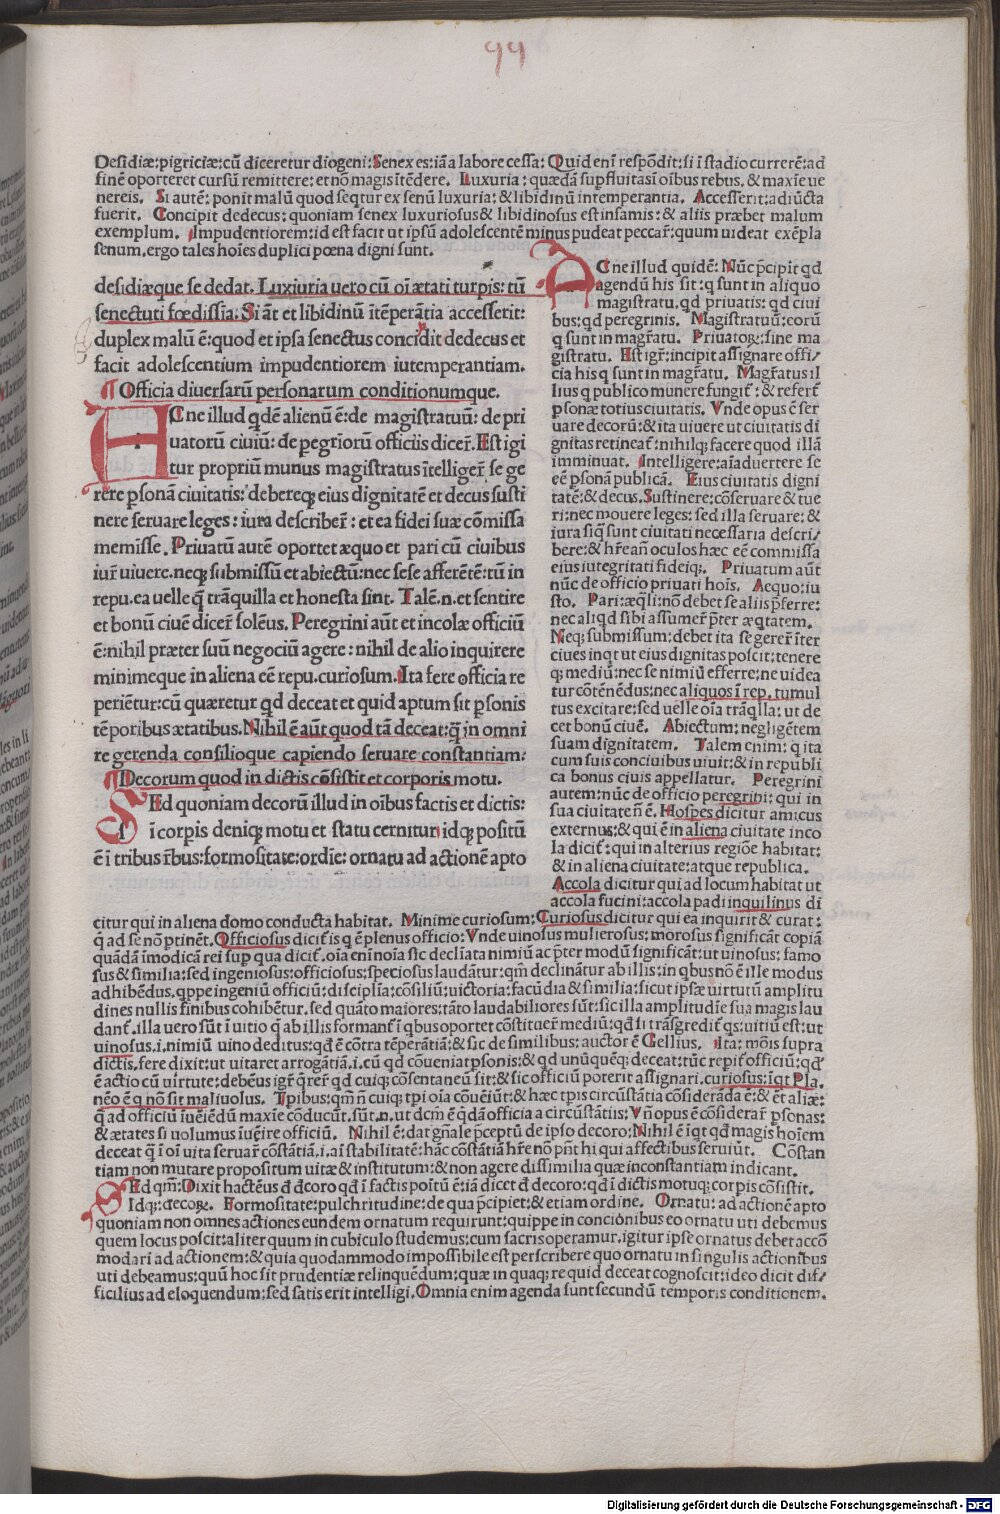 99
Desidiæ: pigriciæ: cū diceretur diogeni: Senex es: iā a labore cessa: Quid enī respōdit: si ī stadio currerē: ad
finē oporteret cursū remittere: et nō magis ītēdere. Luxuria: quædā supfluitas ī oībus rebus, & maxīe ue
nereis. Si autē: ponit malū quod seqtur ex senū luxuria: & libidinū intemperantia. Accesserit: adiūcta
fuerit. Concipit dedecus: quoniam senex luxuriosus & libidinosus est infamis: & aliis præbet malum
exemplum. Impudentiorem: id est facit ut ipsū adolescentē minus pudeat peccar̄: quum uideat exēpla
senum, ergo tales hoīes duplici pœna digni sunt.
desidiæque se dedat. Luxiuria uero cū oī ætati turpis: tū
senectuti fœdissīa. Si āt et libidinū ītēperātia accesserit:
duplex malū ē: quod et ipsa senectus concidit dedecus et
facit adolescentium impudentiorem iutemperantiam.
¶ Officia diuersarū personarum conditionumque.
AC ne illud qdē alienū ē: de magistratuū: de pri
uatorū ciuiū: de pegriorū officiis dicer̄. Est igi
tur proprium munus magistratus ītelliger̄ se ge
rere psonā ciuitatis: debereq; eius dignitatē et decus susti
nere seruare leges: iura describer̄: et ea fidei suæ cōmissa
memisse. Priuatū autē oportet æquo et pari cū ciuibus
iur̄ uiuere. neq; submissū et abiectū: nec sese afferētē: tū in
repu. ea uelle q̄ trāquilla et honesta sint. Talē.n. et sentire
et bonū ciuē dicer̄ solēus. Peregrini aūt et incolæ officiū
ē: nihil præter suū negociū agere: nihil de alio inquirere
minimeque in aliena eē repu. curiosum. Ita fere officia re
periētur: cū quæretur qd deceat et quid aptum sit psonis
tēporibus ætatibus. Nihil ē aūt quod tā deceat: q̄ in omni
re gerenda consilioque capiendo seruare constantiam:
¶ Decorum quod in dictis cōsistit et corporis motu.
SEd quoniam decorū illud in oībus factis et dictis:
ī corpis deniq; motu et statu cernitur idq; positū
ē ī tribus rībus: formositate: ordīe: ornatu ad actionē apto
AC ne illud quidē: Nūc pcipit qd
agendū his sit: q sunt in aliquo
magistratu, qd priuatis: qd ciui
bus: qd peregrinis. Magistratuū: eorū
q sunt in magr̄atu. Priuatoꝝ: sine ma
gistratu. Est igr̄: incipit assignare offi/
cia his q sunt in magr̄atu. Magr̄atus il
lius q publico munere fungit̄: & refert̄
psonæ totius ciuitatis. Vnde opus ē ser
uare decorū: & ita uiuere ut ciuitatis di
gnitas retineat̄: nihilq; facere quod illā
imminuat. Intelligere: aīaduertere se
eē psonā publicā. Eius ciuitatis digni
tatē: & decus. Sustinere: cōseruare & tue
ri: nec mouere leges: sed illa seruare: &
iura siq sunt ciuitati necessaria descri/
bere: & hr̄e an̄ oculos hæc eē commissa
eius iutegritati fideiq;. Priuatum aūt
nūc de officio priuati hoīs. Aequo: iu
sto. Pari: æqli: nō debet se aliis pferre:
nec aliqd sibi assumer̄ pter æqtatem.
Neq; submissum: debet ita se gerer̄ īter
ciues inqt ut eius dignitas poscit: tenere
q; mediū: nec se nimiū efferre: ne uidea
tur cōtēnēdus: nec aliquos ī rep. tumul
tus excitare: sed uelle oīa trāqlla: ut de
cet bonū ciuē. Abiectum: negligētem
suam dignitatem. Talem enim: q ita
cum suis conciuibus uiuit: & in republi
ca bonus ciuis appellatur. Peregrini
autem: nūc de officio peregrini: qui in
sua ciuitate n̄ ē. Hospes dicitur amicus
externus: & qui ē in aliena ciuitate inco
la dicit̄: qui in alterius regiōe habitat:
& in aliena ciuitate: atque republica.
Accola dicitur qui ad locum habitat ut
accola fucini: accola padi inquilinus di
citur qui in aliena domo conducta habitat. Minime curiosum: Curiosus dicitur qui ea inquirit & curat:
q̄ ad se nō ptinēt. Officiosus dicit̄ is q ē plenus officio: Vnde uinosus mulierosus: morosus significāt copiā
quādā īmodicā rei sup qua dicit̄. oīa enī noīa sic declīata nimiū ac pter modū significāt: ut uinosus: famo
sus & similia: sed ingeniosus: officiosus: speciosus laudātur: qm̄ declinātur ab illis: in qbus nō ē ille modus
adhibēdus. qppe ingeniū officiū: disciplīa: cōsiliū: uictoria: facūdia & similia: sicut ipsæ uirtutū amplitu
dines nullis finibus cohibētur. sed quāto maiores: tāto laudabiliores sūt: sic illa amplitudīe sua magis lau
dant̄. illa uero sūt ī uitio q̄ ab illis formant̄ ī qbus oportet cōstituer̄ mediū: qd̄ si trāsgredit̄ qs: uitiū est: ut
uinosus .i. nimiū uino deditus: qd̄ ē cōtra tēperātiā: & sic de similibus: auctor ē Gellius. Ita: mōis supra
dictis. fere dixit: ut uitaret arrogātiā .i. cū qd cōueniat psonis: & qd unūquēq; deceat: tūc repit̄ officiū: qd̄
ē actio cū uirtute: debēus igr̄ q̄rer̄ qd cuiq; cōsentaneū sit: & sic officiū poterit assignari. curiosus: īqt Pla.
nēo ē q nō sit maliuolus. Tpibus: qm̄ n̄ cuiq; tpi oīa cōueīūt: & hæc tpis circūstātia cōsiderāda ē: & ēt aliæ:
q̄ ad officiū īueīēdū maxīe cōducūt. sūt.n. ut dcm̄ ē qdā officia a circūstātiis: Vn̄ opus ē cōsiderar̄ psonas:
& ætates si uolumus īueīre officiū. Nihil ē: dat gn̄ale pceptū de ipso decoro: Nihil ē īqt qd̄ magis hoīem
deceat q̄ ī oī uita seruar̄ cōstātiā .i. aī stabilitatē: hāc cōstātiā hr̄e nō pn̄t hi qui affectibus seruiūt. Cōstan
tiam non mutare propositum uitæ & institutum: & non agere dissimilia quæ inconstantiam indicant.
SEd qm̄: Dixit hactēus d̄ d̄coro qd̄ ī factis poītū ē: iā dicet d̄ decoro: qd̄ ī dictis motuq; corpis cōsistit.
Idq; decoꝝ. Formositate: pulchritudine: de qua pcipiet: & etiam ordine. Ornatu: ad actionē apto
quoniam non omnes actiones eundem ornatum requirunt: quippe in concionibus eo ornatu uti debemus
quem locus poscit: aliter quum in cubiculo studemus: cum sacris operamur. igitur ipse ornatus debet accō
modari ad actionem: & quia quodammodo impossibile est perscribere quo ornatu in singulis actionibus
uti debeamus: quū hoc sit prudentiæ relinquēdum: quæ in quaq; re quid deceat cognoscit: ideo dicit dif/
ficilius ad eloquendum: sed satis erit intelligi. Omnia enim agenda sunt secundū temporis conditionem.
Digitalisierung gefördert durch die Deutsche Forschungsgemeinschaft - DFG